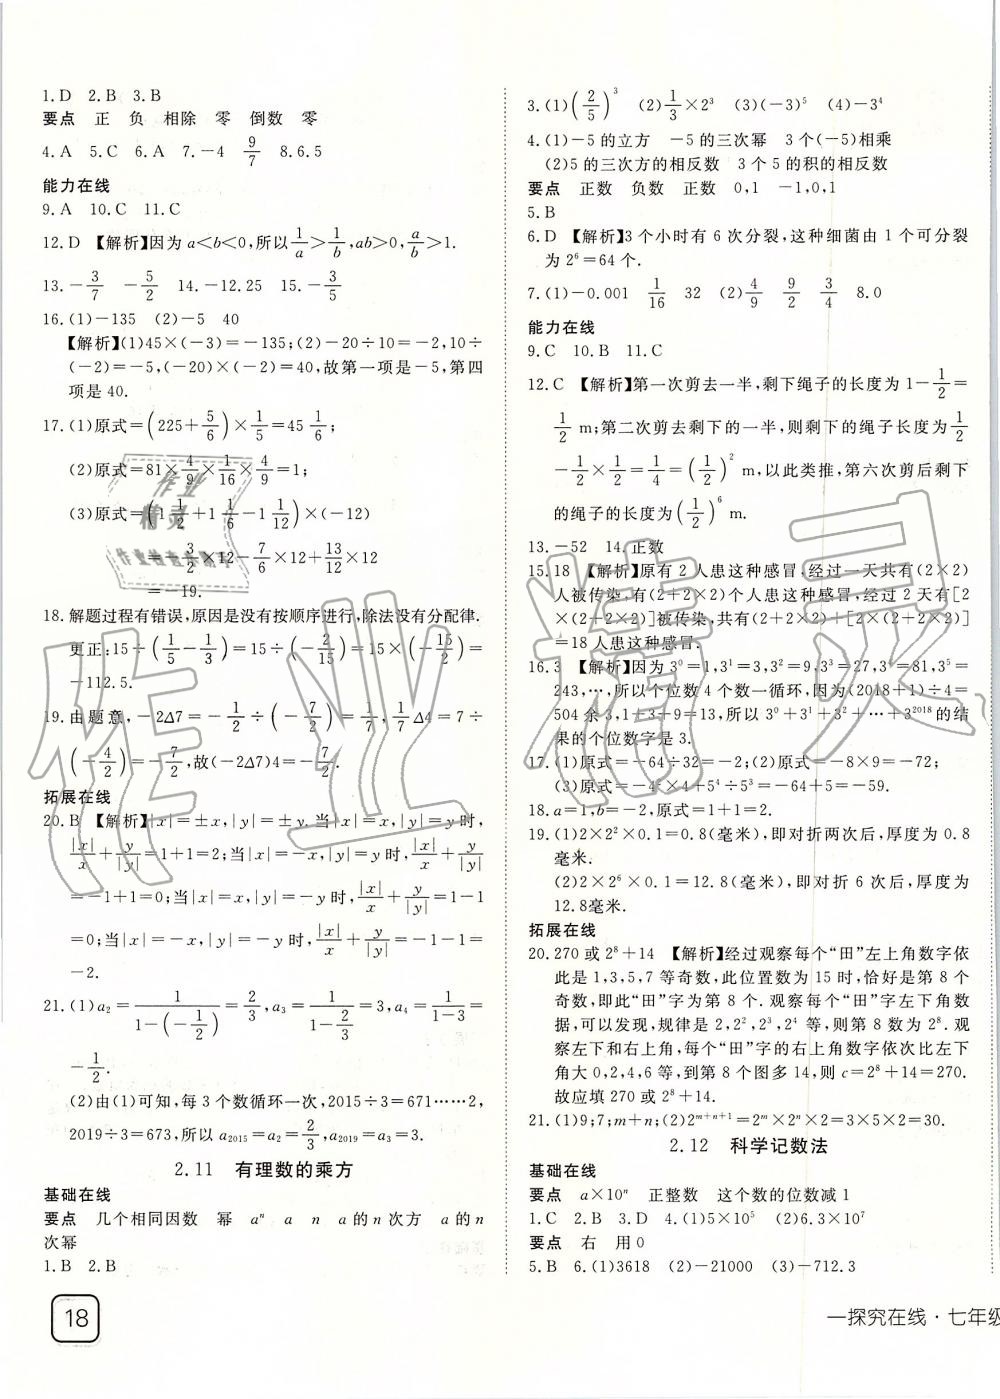 1.D 2.B 3.B
要点 正 负 相除 零 倒数 零
4.A 5.C 6.A 7.-4 9/7 8.6.5
能力在线
9.A 10.C 11.C
12.D 【解析】因为a<b<0,所以1/a>1/b,ab>0,a/b>1.
13.-3/7 -5/2 14.-12.25 15.-3/5
16.(1)-135 (2)-5 40
【解析】(1)45×(-3)=-135;(2)-20÷10=-2,10÷
(-2)=-5,(-20)×(-2)=40,故第一项是-5,第四
项是40.
17.(1)原式=(225+5/6)×1/5=45 1/6;
(2)原式=81×4/9×1/16×4/9=1;
(3)原式=(1 1/2+1 1/6-1 1/12)×(-12)
=-3/2×12-7/6×12+13/12×12
=-19.
18.解题过程有错误,原因是没有按顺序进行,除法没有分配律.
更正:15÷(1/5-1/3)=15÷(-2/15)=15×(-15/2)=
-112.5.
19.由题意,-2Δ7=-1/2÷(-7/2)=1/7,1/7Δ4=7÷
(-4/2)=-7/2,故(-2Δ7)4=-7/2.
拓展在线
20.B 【解析】|x|=±x,|y|=±y.当|x|=x,|y|=y时,
|x|/x+y/|y|=1+1=2;当|x|=-x,|y|=y时,|x|/x+y/|y|
=-1+1=0;当|x|=x,|y|=-y时,|x|/x+y/|y|=1-1
=0;当|x|=-x,|y|=-y时,|x|/x+y/|y|=-1-1=
-2.
21.(1)a₂=1/(1-(-1/2))=2/3,a₃=1/(1-2/3)=3,a₄=1/(1-3)=
-1/2.
(2)由(1)可知,每3个数循环一次,2015÷3=671……2,
2019÷3=673,所以a₂₀₁₅=2/3,a₂₀₁₉=a₃=3.
2.11 有理数的乘方
基础在线
要点 几个相同因数 幂 aⁿ a n a的n次方 a的n
次幂
1.B 2.B
3.(1)(2/5)³ (2)1/3×2³ (3)(-3)⁵ (4)-3⁴
4.(1)-5的立方 -5的三次幂 3个(-5)相乘
(2)5的三次方的相反数 3个5的积的相反数
要点 正数 负数 正数 0,1 -1,0,1
5.B
6.D 【解析】3个小时有6次分裂,这种细菌由1个可分裂
为2⁶=64个.
7.(1)-0.001 1/16 32 (2)4/9 9/2 3/4 8.0
能力在线
9.C 10.B 11.C
12.C 【解析】第一次剪去一半,剩下绳子的长度为1-1/2=
1/2 m;第二次剪去剩下的一半,则剩下的绳子长度为1/2
-1/2×1/2=1/4=(1/2)² m,以此类推,第六次剪后剩下
的绳子的长度为(1/2)⁶ m.
13.-52 14.正数
15.18 【解析】原有2人患这种感冒,经过一天共有(2×2)
人被传染,有(2+2×2)人患这种感冒,经过2天有[2
×(2+2×2)]被传染,共有(2+2×2)+[2×(2+2×2)]
=18人患这种感冒.
16.3 【解析】因为3⁰=1,3¹=3,3²=9,3³=27,3⁴=81,3⁵=
243,…,所以个位数4个数一循环,因为(2018+1)÷4=
504余3,1+3+9=13,所以3⁰+3¹+3²+…+3²⁰¹⁸的结
果的个位数字是3.
17.(1)原式=-64÷32=-2;(2)原式=-8×9=-72;
(3)原式=-4×4²+5⁴÷5³=-64+5=-59.
18.a=1,b=-2,原式=1+1=2.
19.(1)2×2²×0.1=0.8(毫米),即对折两次后,厚度为0.8
毫米.
(2)2×2⁶×0.1=12.8(毫米),即对折6次后,厚度为
12.8毫米.
拓展在线
20.270或2⁸+14 【解析】经过观察每个“田”左上角数字依
此是1,3,5,7等奇数,此位置数为15时,恰好是第8个
奇数,即此“田”字为第8个.观察每个“田”字左下角数
据,可以发现,规律是2,2²,2³,2⁴等,则第8数为2⁸.观
察左下和右上角,每个“田”字的右上角数字依次比左下
角大0,2,4,6等,到第8个图多14,则c=2⁸+14=270.
故应填2⁸+14.
21.(1)9;7;m+n;(2)2ᵐ⁺ⁿ⁺¹=2ᵐ×2ⁿ×2=3×5×2=30.
2.12 科学记数法
基础在线
要点 a×10ⁿ 正整数 这个数的位数减1
1.C 2.B 3.D 4.(1)5×10⁵ (2)6.3×10⁷
要点 右 用0
5.B 6.(1)3618 (2)-21000 (3)-712.3
18
一探究在线·七年级
作业精灵
作业精灵